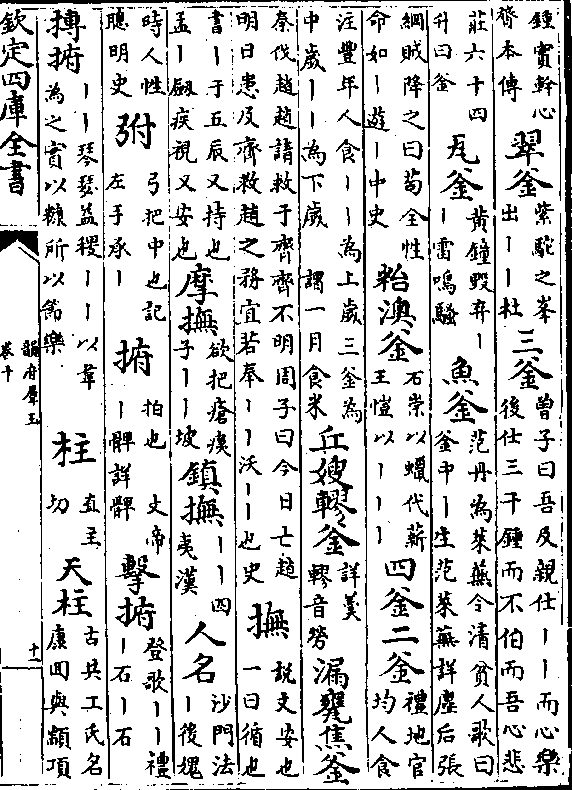 鍾實幹心
膂本傳
翠釜
紫駝之峯
出丨丨杜
三釜
曾子曰吾及親仕丨丨而心樂
後仕三千鍾而不伯而吾心悲
莊六十四
升曰釜
瓦釜
黄鐘毁弃丨
丨雷鳴騷
魚釜
范丹為萊蕪令清貧人歌曰
釜中丨生范萊蕪詳塵后張
綱賊降之曰苟全性
命如丨遊丨中史
𥹋澳釜
石崇以蠟代薪
王愷以丨丨丨
四釜二釜
禮地官
均人食
注豐年人食丨丨為上歲三釜為
中歲丨丨為下歲 謂一月食米
丘嫂轇釜
詳羹
轇音勞
漏甕焦釜
秦伐趙趙請救于齊齊不明周子曰今日亡趙
明日患及齊救趙之務宜若奉丨丨沃丨丨也史
撫
說文安也
一曰循也
書丨于五辰又持也
孟丨劔疾視又安也
摩撫
欲把瘡痍
子丨丨坡
鎮撫
丨丨四
夷漢
人名
沙門法
丨後槐
時人性
聰明史
弣
弓把中也記
左手承丨
捬
拍也 丈帝
丨髀詳髀
擊捬
登歌丨丨禮
丨石丨石
搏捬
丨丨琴瑟益稷丨丨以韋
為之實以糠所以節樂
柱
直主
切
天柱
古共工氏名
康回與顓頊
欽定四庫全書
韻府羣玉
卷十
十一